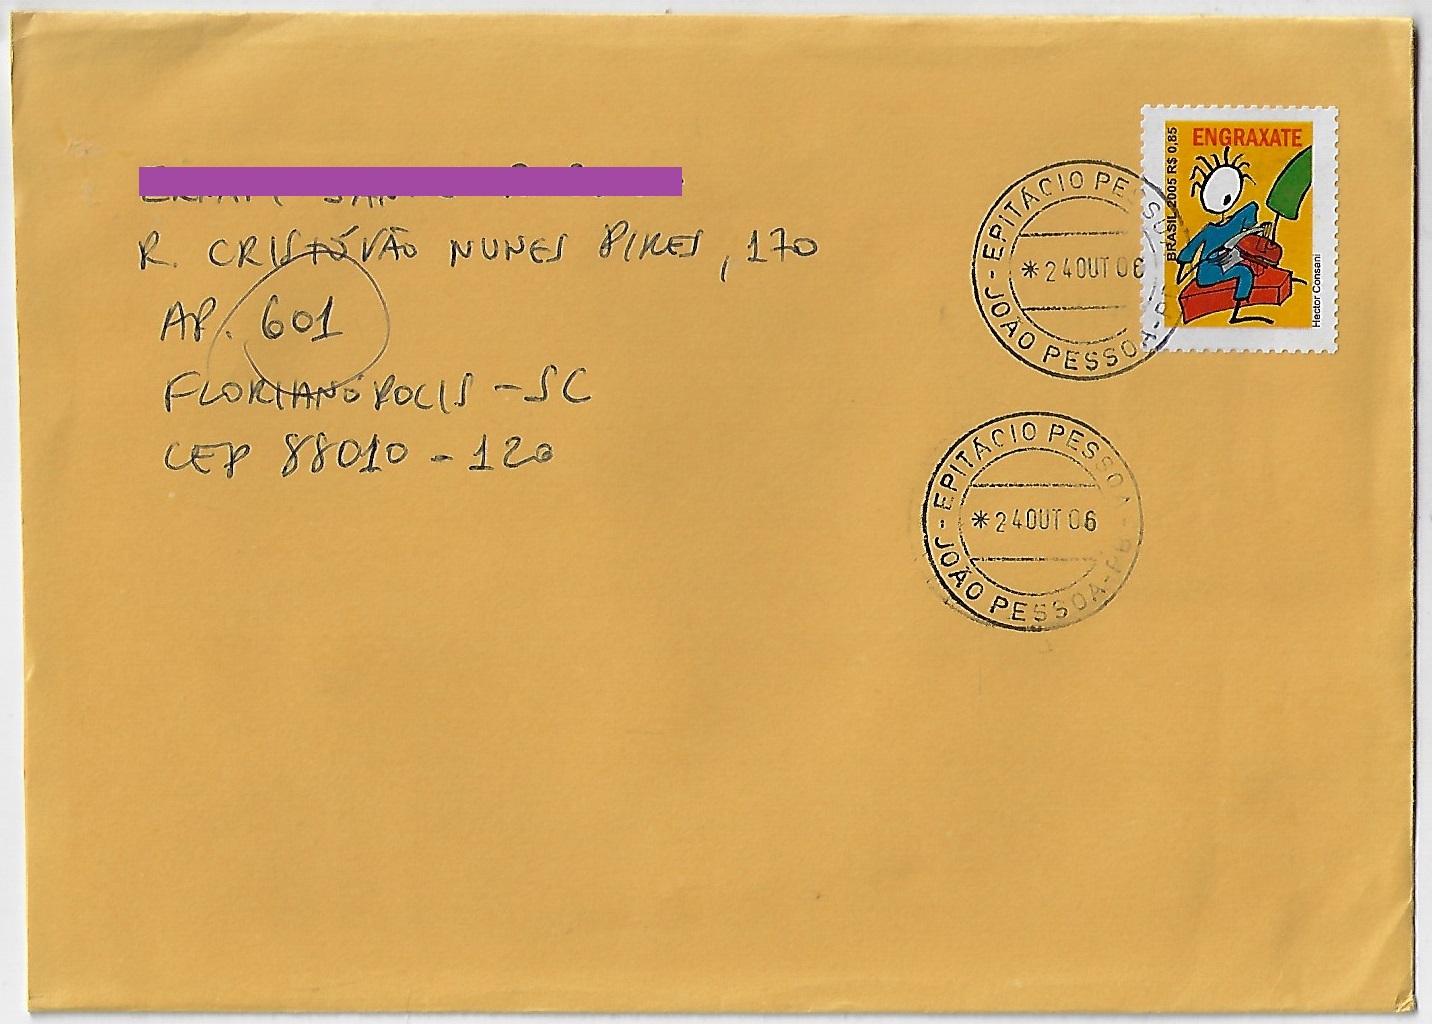 R. CRISTÓVÃO NUNES PIRES, 170
AP. 601
FLORIANÓPOLIS - SC
CEP 88010 - 120
ENGRAXATE
BRASIL 2005 R$ 0,85
Hector Consani
- EPITÁCIO PESSOA -
* 24 OUT 06
JOÃO PESSOA - P
- EPITÁCIO PESSOA -
* 24 OUT 06
JOÃO PESSOA - PB